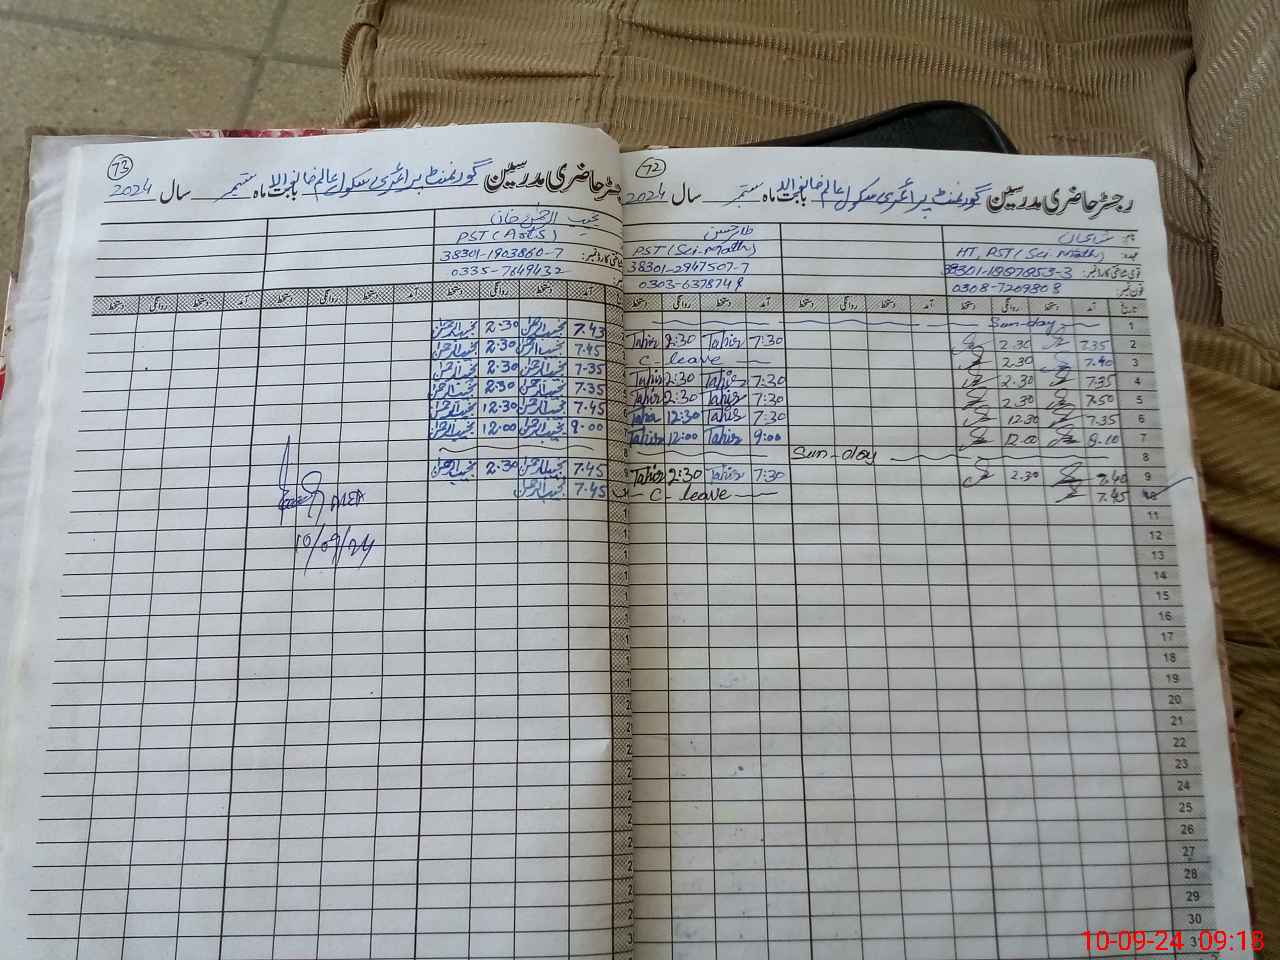 73
رجسٹر حاضری مدرسین گورنمنٹ پرائمری سکول عالم خانوالا بابت ماہ ستمبر سال 2024
مجیب الرحمٰن خان
PST (Arts)
38301-1903860-7
0335-7649432
آمد دستخط روانگی دستخط آمد دستخط روانگی دستخط آمد دستخط روانگی دستخط
7.43 مجیب الرحمٰن 2.30 مجیب الرحمٰن
7.45 مجیب الرحمٰن 2.30 مجیب الرحمٰن
7.35 مجیب الرحمٰن 2.30 مجیب الرحمٰن
7.35 مجیب الرحمٰن 2.30 مجیب الرحمٰن
7.45 مجیب الرحمٰن 12.30 مجیب الرحمٰن
9.00 مجیب الرحمٰن 12.00 مجیب الرحمٰن
7.45 مجیب الرحمٰن 2.30 مجیب الرحمٰن
7.45 مجیب الرحمٰن
AEO
10/09/24
72
رجسٹر حاضری مدرسین گورنمنٹ پرائمری سکول عالم خانوالا بابت ماہ ستمبر سال 2024
نام:
عہدہ: HT, PST (Sci-Math)
قومی شناختی کارڈ نمبر: 38301-1987853-3
فون نمبر: 0308-7209808
طاہر حسن
PST (Sci-Math)
38301-2947507-7
0303-6378748
تاریخ آمد دستخط روانگی دستخط آمد دستخط روانگی دستخط آمد دستخط روانگی دستخط
1 Sunday
2 7.35 2.30 7:30 Tahir 2:30 Tahir
3 7.40 2.30 C-leave
4 7.35 2.30 7:30 Tahir 2:30 Tahir
5 7.50 2.30 7:30 Tahir 2:30 Tahir
6 7.35 12.30 7:30 Tahir 12:30 Taha
7 9.10 12.00 9:00 Tahir 12:00 Tahir
8 Sun-day
9 7.40 2.30 7:30 Tahir 2:30 Tahir
10 7.45 C-leave
11
12
13
14
15
16
17
18
19
20
21
22
23
24
25
26
27
28
29
30
31
10-09-24 09:18